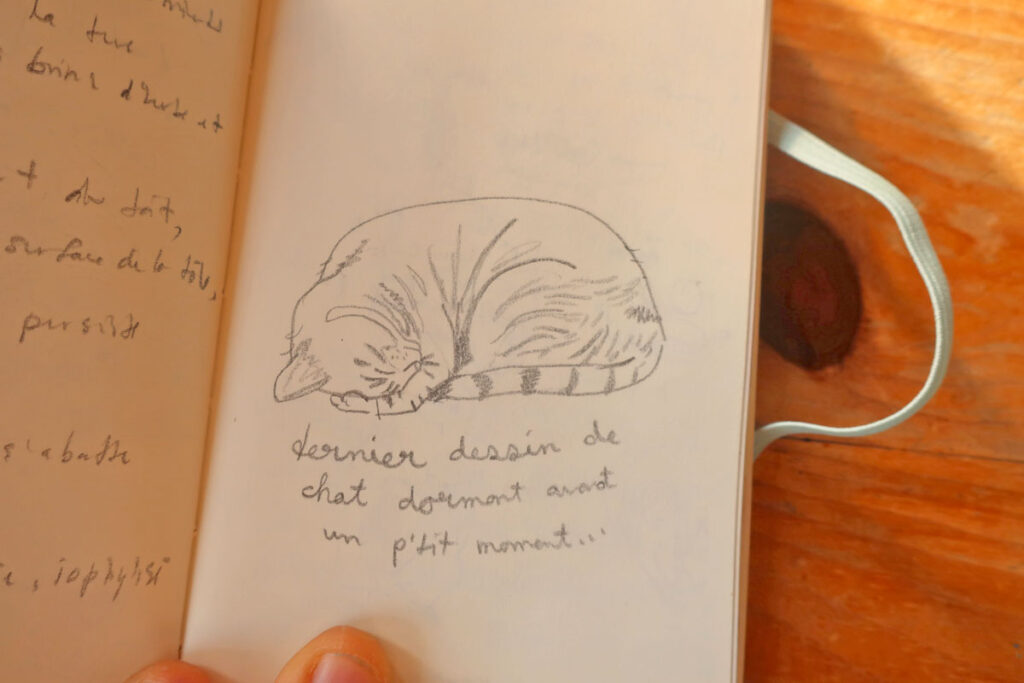 la
brins d'herbe et
du toit,
surface de la
persiste
s'abatte
dernier dessin de
chat dormant avant
un p'tit moment...